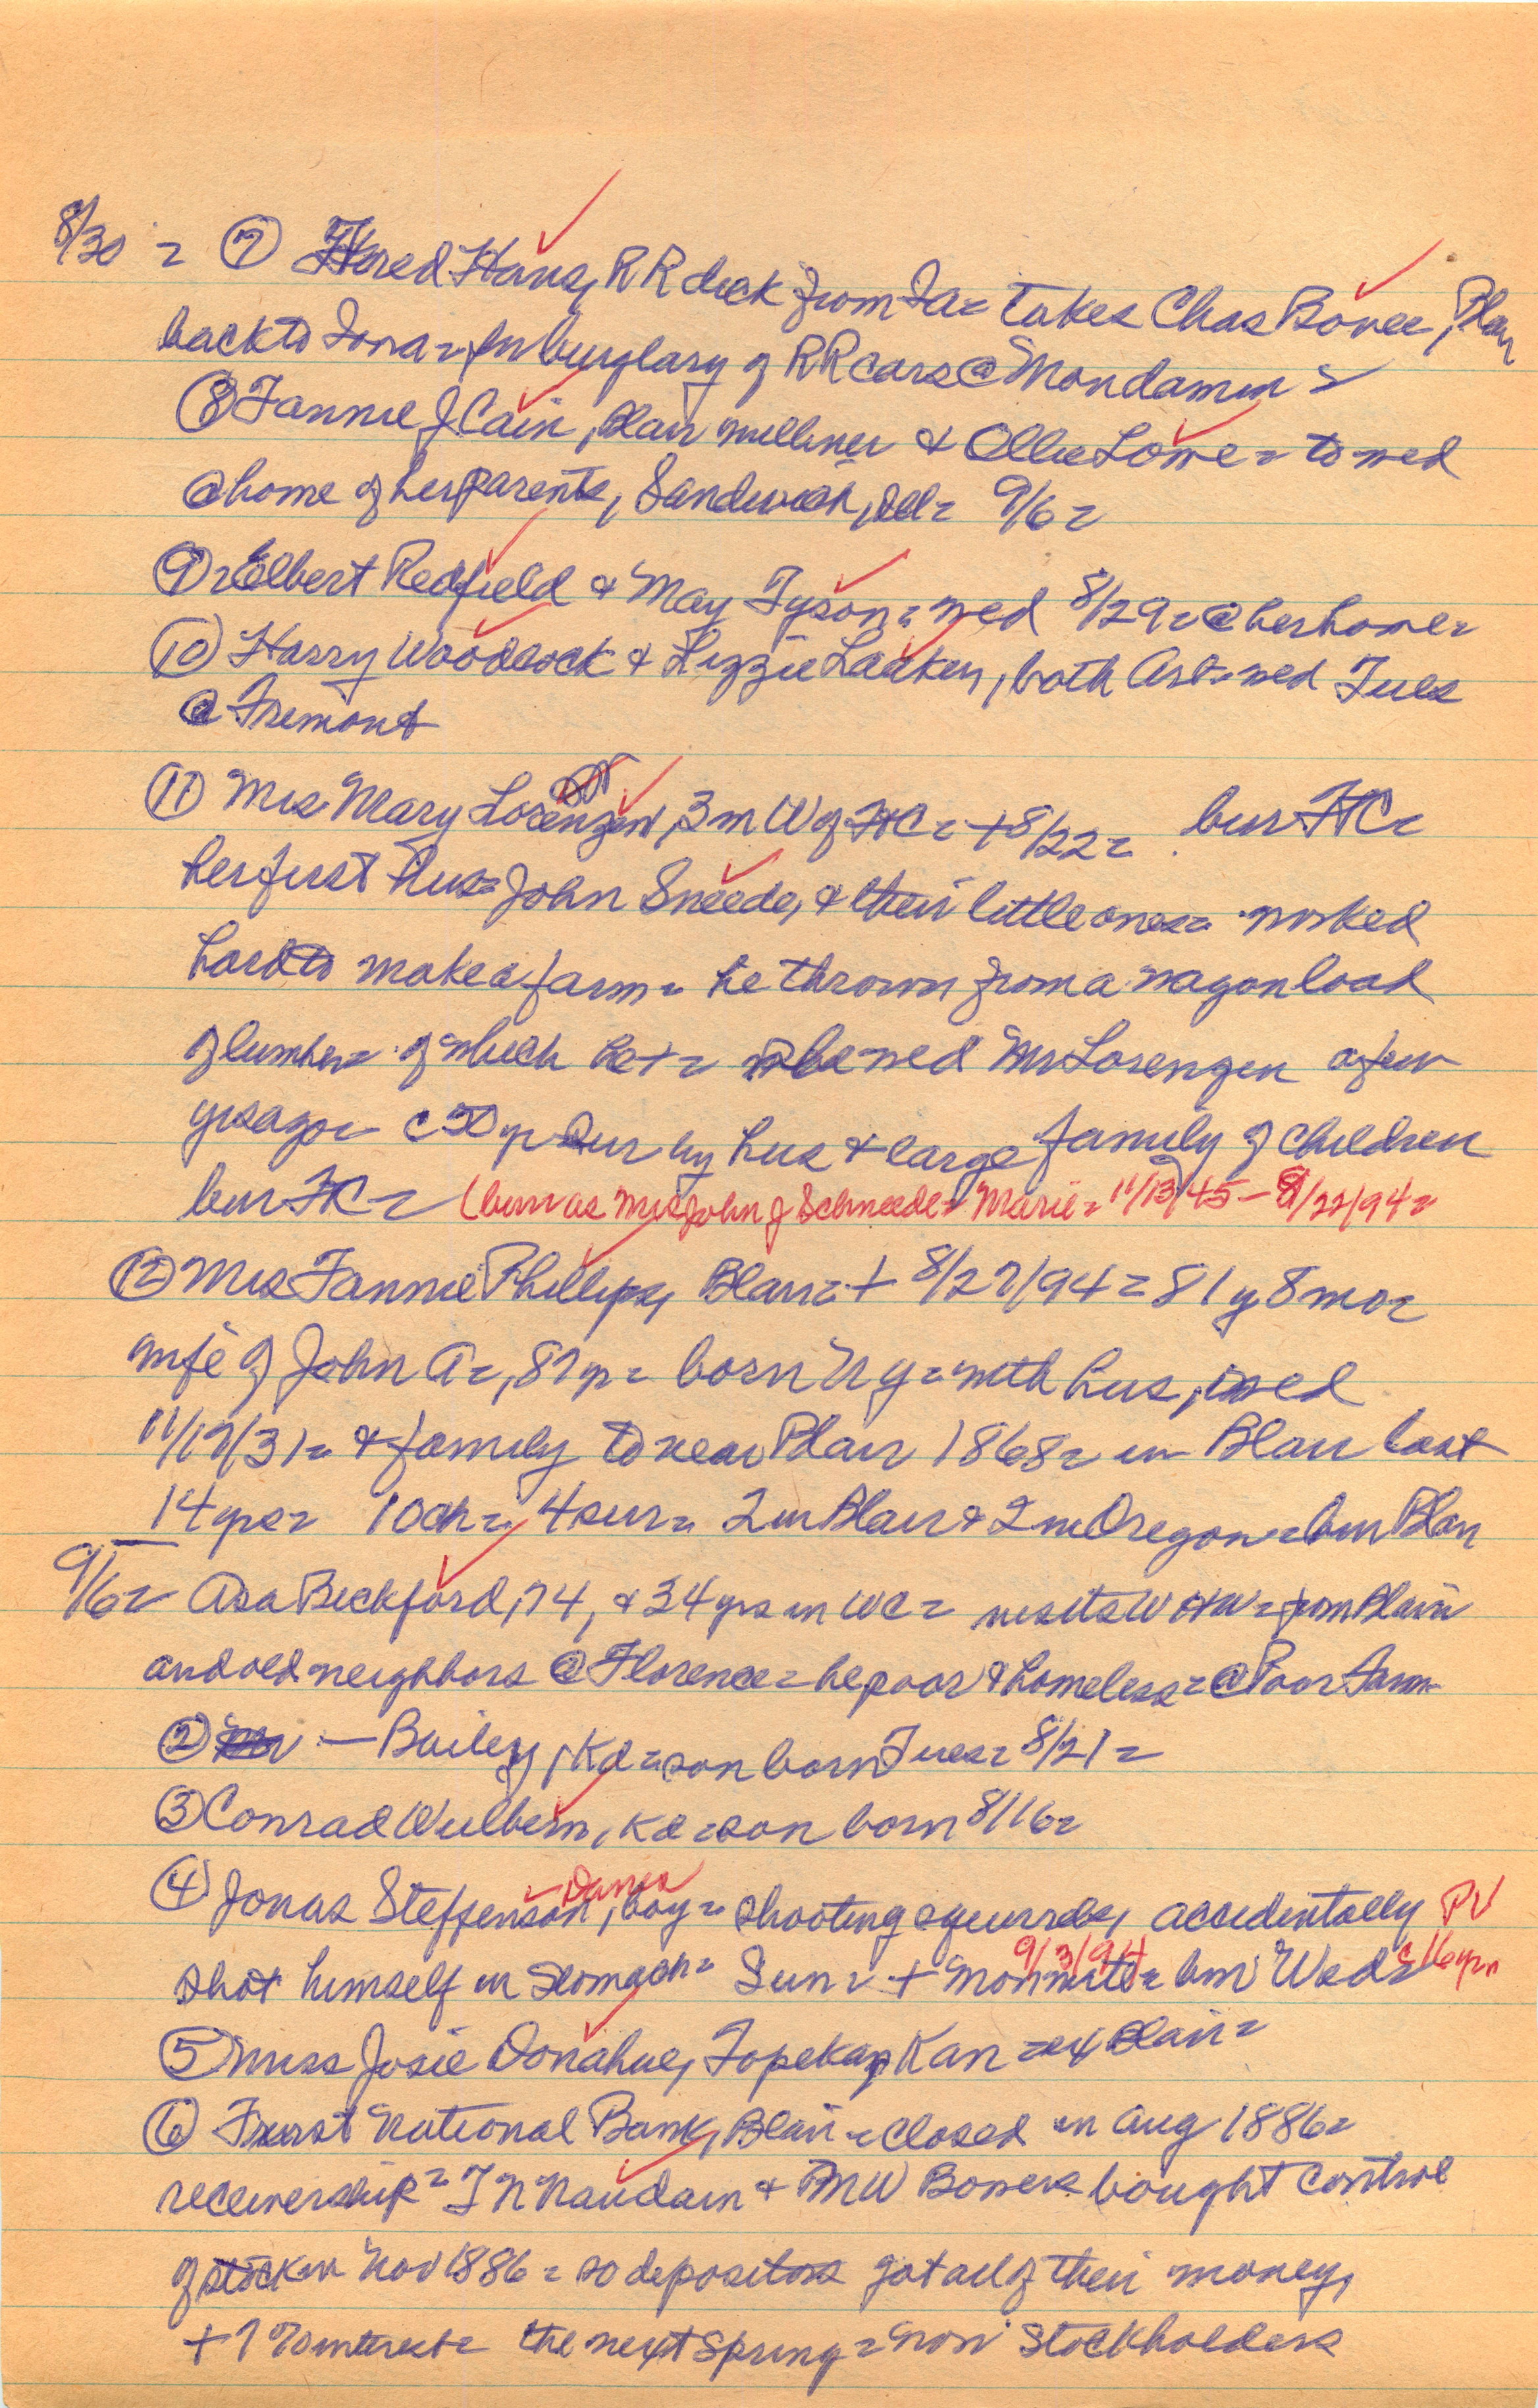 8/30 = ⑦ Fred Haus, RR dick from Ia = takes Chas Bovee, Blair
back to Iowa = for burglary of RR cars @ Mondamin =
⑧ Fannie J Cain, Blair milliner & Ollie Lowe = to wed
@ home of her parents, Sandwich, Ill = 9/6 =
⑨ = Elbert Redfield & May Tyson = wed 8/29 = @ her home =
⑩ Harry Woodcock & Lizzie Laaken, both Arl = wed Tues
@ Fremont
⑪ Mrs Mary Lorenzen, 3 m W of FtC = + 8/22 = bur FtC =
her first hus = John Sneede, & their little ones = worked
hard to make a farm = he thrown from a wagon load
of lumber = of which he + = she wed Mr Lorenzen a few
yrs ago = c 50 yr = sur by hus & large family of children
bur FtC = (bur as Mrs John J Schneede = Marie = 11/13/45 - 8/22/94 =
⑫ Mrs Fannie Phillips, Blair = + 8/27/94 = 81 y 8 mo =
wife of John A =, 87 yr = born NY = with hus, wed
11/17/31 = & family to near Blair 1868 = in Blair last
14 yrs = 10 ch = 4 sur = 2 in Blair & 2 in Oregon = bur Blair
9/6 = Asa Beckford, 74, & 34 yrs in WC = visits W = from Blair
and old neighbors @ Florence = he poor & homeless = @ Poor Farm
② — Bailey, Kd = son born Tues = 8/21 =
③ Conrad Wulbern, Kd = son born 8/16 =
④ Jonas Steffenson, boy = shooting squirrels, accidentally PV
shot himself in stomach = Sun = + Mon nite = 9/3/94 bur Weds c 16 yr =
⑤ Miss Josie Donahue, Topeka, Kan = ex Blair =
⑥ First National Bank, Blair = closed in Aug 1886 =
receivership = T N Naudain & M W Bowers bought control
of stock in Nov 1886 = so depositors got all of their money,
+ 7% interest = the next Spring = now stockholders